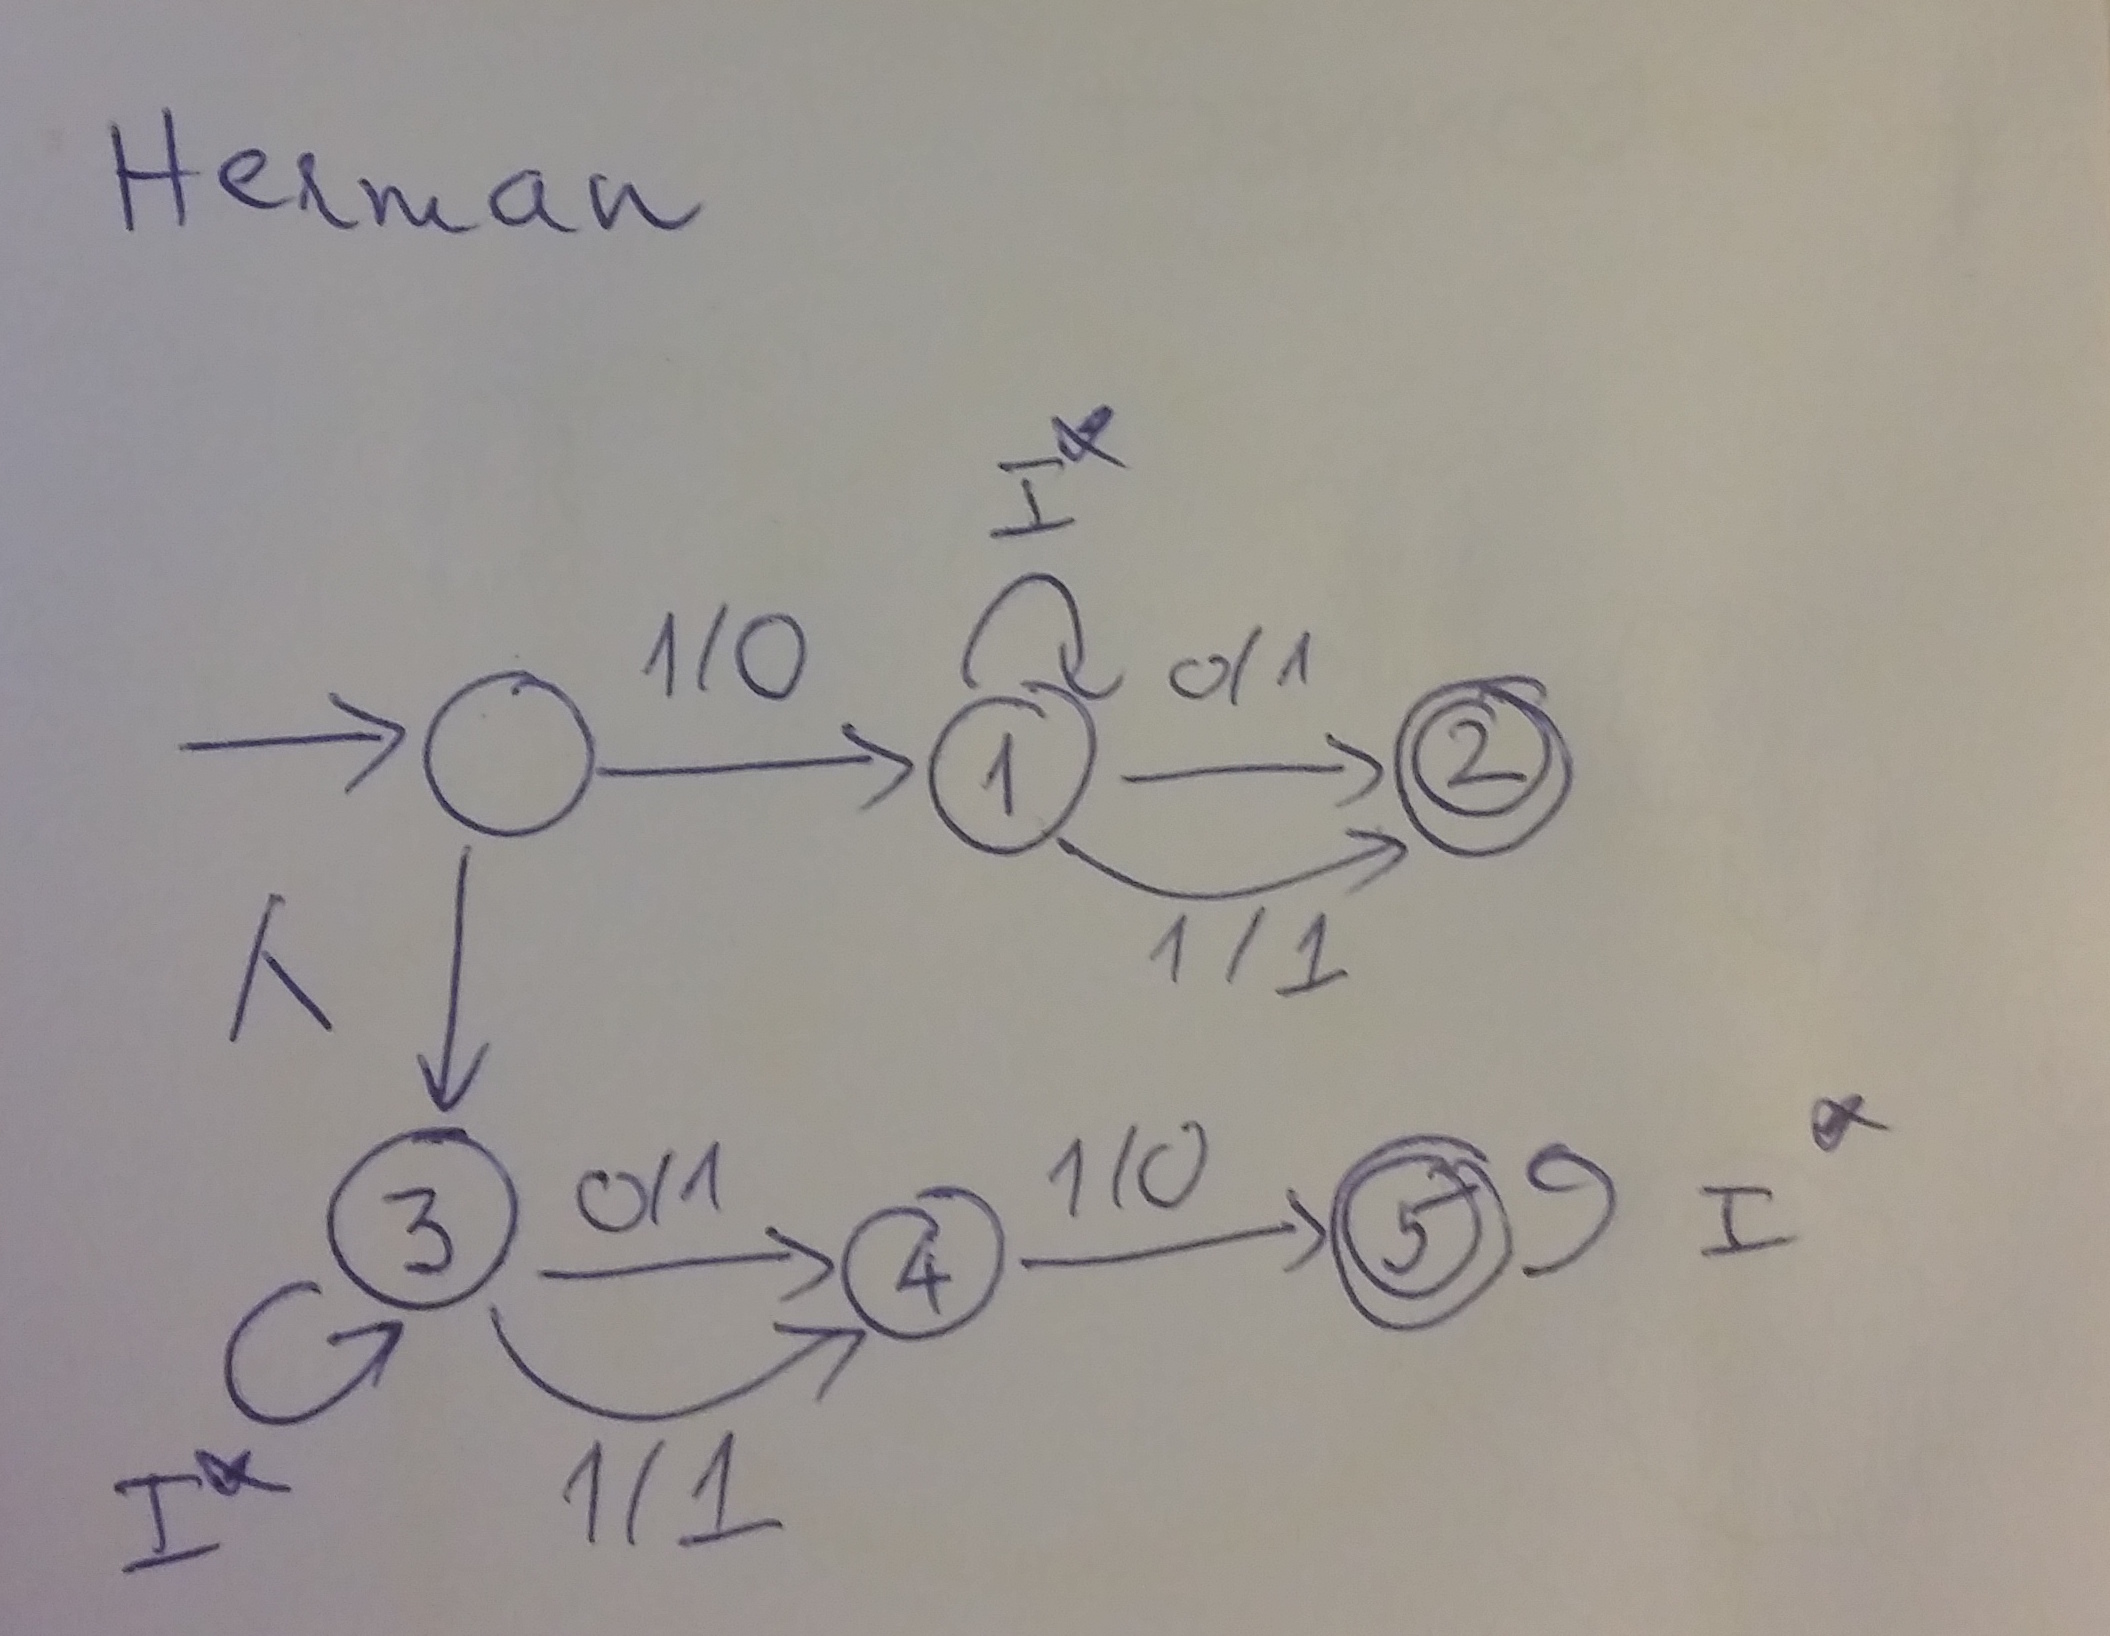 Herman
I*
1/0
0/1
1
2
1/1
λ
3
0/1
4
1/0
5
I*
1/1
I*